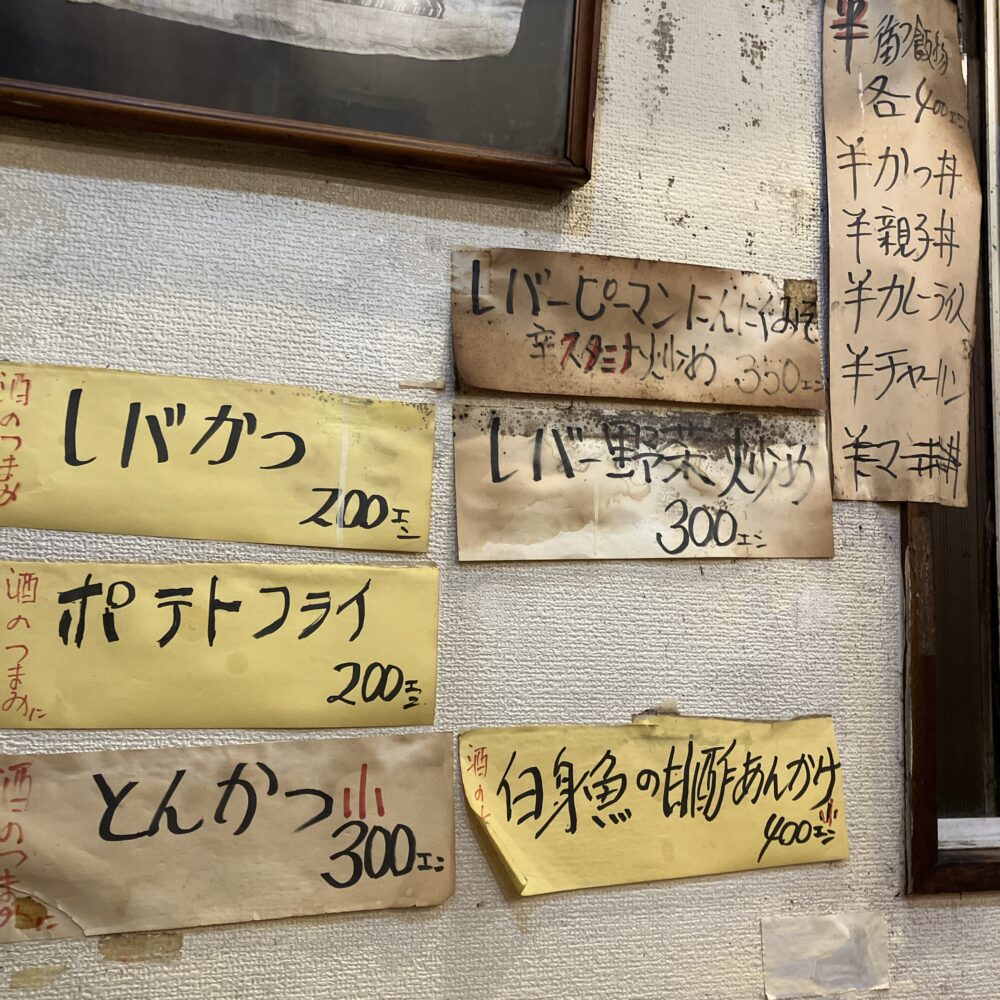 酒のつまみ
レバかつ
200エン
酒のつまみに
ポテトフライ
200エン
酒のつまみに
とんかつ小
300エン
レバーピーマンにんにくみそ
辛スタミナ炒め 350エン
レバー野菜炒め
300エン
酒の
白身魚の甘酢あんかけ
小
400エン
半御飯物
各400エン
半かつ丼
半親子丼
半カレーライス
半チャーハン